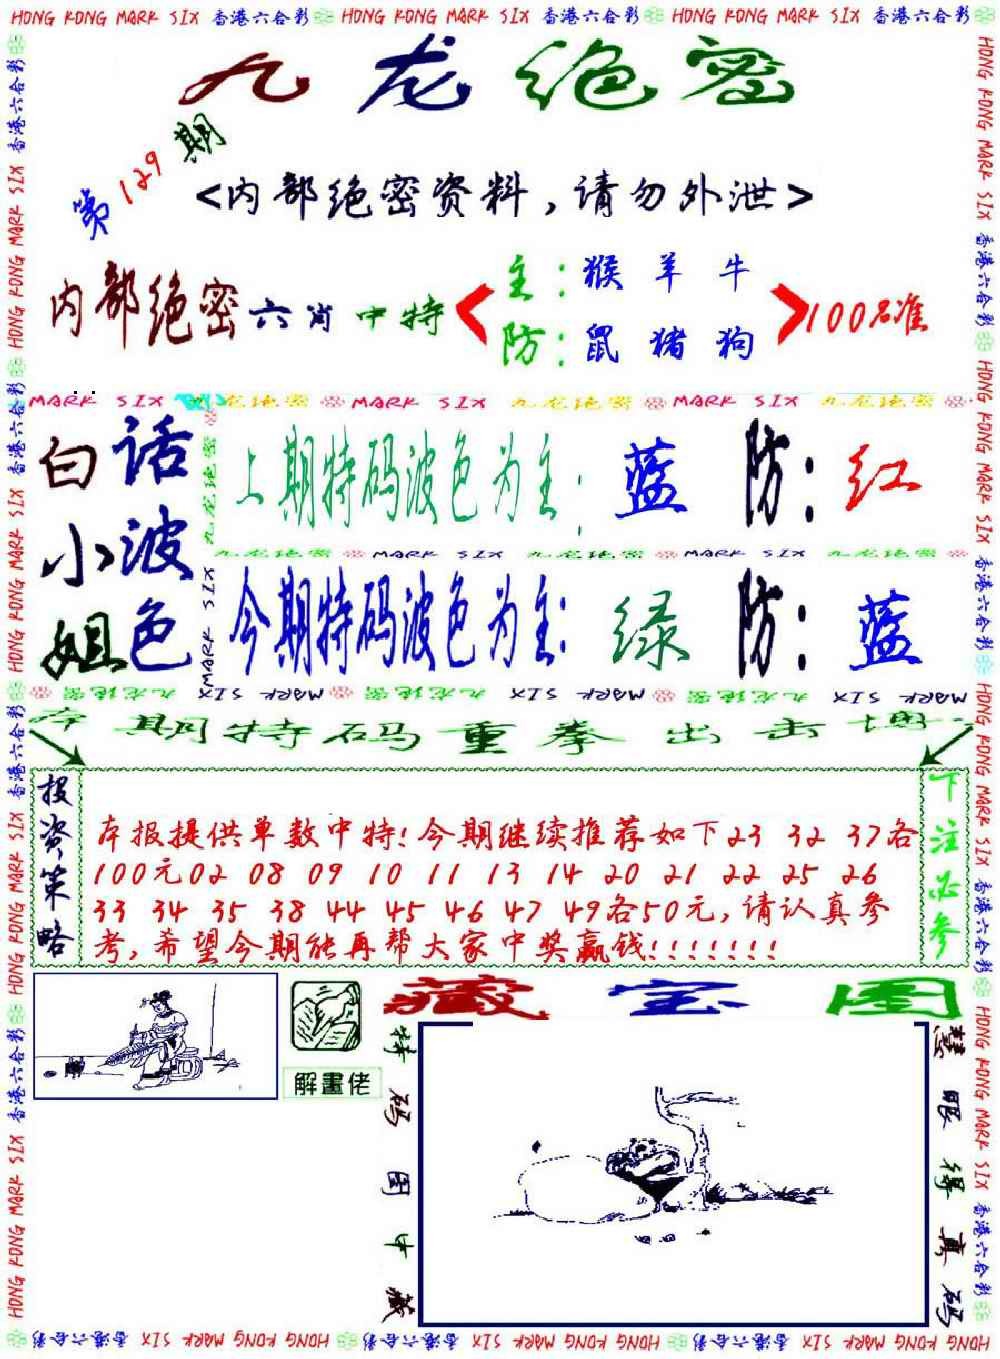 HONG KONG MARK SIX 香港六合彩 HONG KONG MARK SIX 香港六合彩 HONG KONG MARK SIX 香港六合彩
九龙绝密
第129期
<内部绝密资料,请勿外泄>
内部绝密六肖中特
主:猴 羊 牛
防:鼠 猪 狗
100%准
MARK SIX 九龙绝密 MARK SIX 九龙绝密 MARK SIX 九龙绝密
白小姐
话波色
上期特码波色为主:蓝 防:红
九龙绝密 MARK SIX 九龙绝密 MARK SIX 九龙绝密
今期特码波色为主:绿 防:蓝
九龙绝密 MARK SIX 九龙绝密 MARK SIX 九龙绝密 MARK SIX 九龙绝密 MARK SIX
本期特码重拳出击
投资策略
本报提供单数中特!今期继续推荐如下23 32 37各
100元02 08 09 10 11 13 14 20 21 22 25 26
33 34 35 38 44 45 46 47 49各50元,请认真参
考,希望今期能再帮大家中奖赢钱!!!!!!!
下注必参
解畫佬
藏宝图
特码图中藏
慧眼得真码
HONG KONG MARK SIX 香港六合彩 HONG KONG MARK SIX 香港六合彩 HONG KONG MARK SIX 香港六合彩